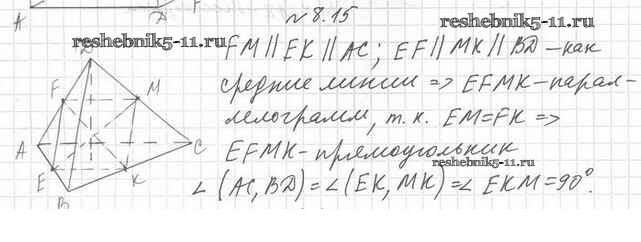 A D F
N 8.15
reshebnik5-11.ru
reshebnik5-11.ru
FM || EK || AC; EF || MK || BD – как
средние линии => EFMK – парал-
лелограмм, т. к. EM = FK =>
EFMK – прямоугольник
reshebnik5-11.ru
∠ (AC, BD) = ∠ (EK, MK) = ∠ EKM = 90°.
D
F M
A C
E K
B